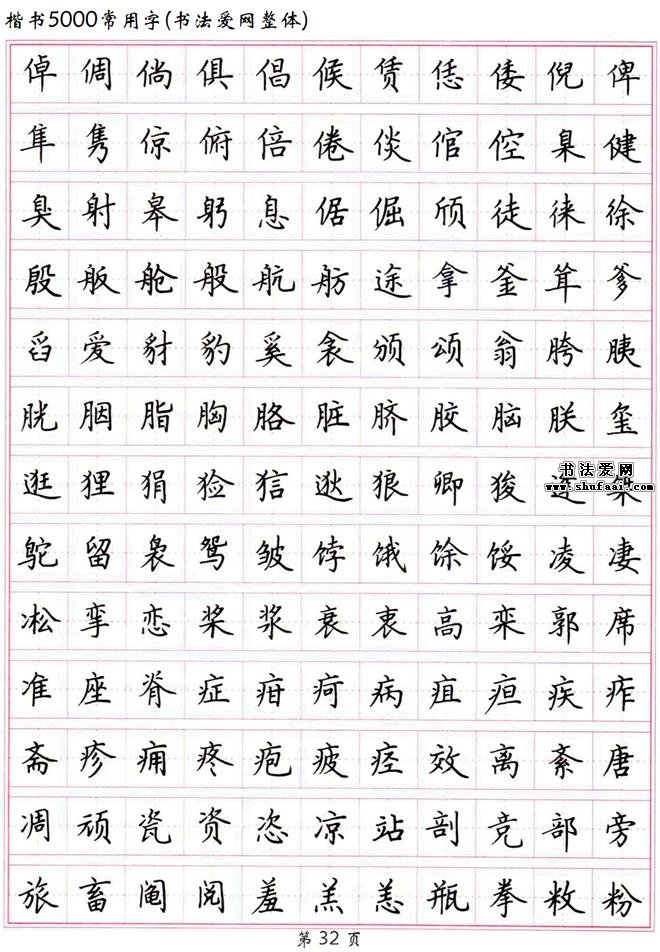 楷书5000常用字(书法爱网整体)
倬 倜 倘 俱 倡 候 赁 恁 倭 倪 俾
隼 隽 倞 俯 倍 倦 倓 倌 倥 臬 健
臭 射 皋 躬 息 倨 倔 颀 徒 徕 徐
殷 舨 舱 般 航 舫 途 拿 釜 耸 爹
舀 爱 豺 豹 奚 衾 颁 颂 翁 胯 胰
胱 胭 脂 胸 胳 脏 脐 胶 脑 朕 玺
逛 狸 狷 猃 狺 逖 狼 卿 狻 逄 桀
鸵 留 袅 鸳 皱 饽 饿 馀 馁 凌 凄
凇 挛 恋 桨 浆 衰 衷 高 栾 郭 席
准 座 脊 症 疳 疴 病 疽 疸 疾 痄
斋 疹 痈 疼 疱 疲 痉 效 离 紊 唐
凋 顽 瓷 资 恣 凉 站 剖 竞 部 旁
旅 畜 阄 阅 羞 羔 恙 瓶 拳 敉 粉
书法爱网
www.shufaai.com
第 32 页